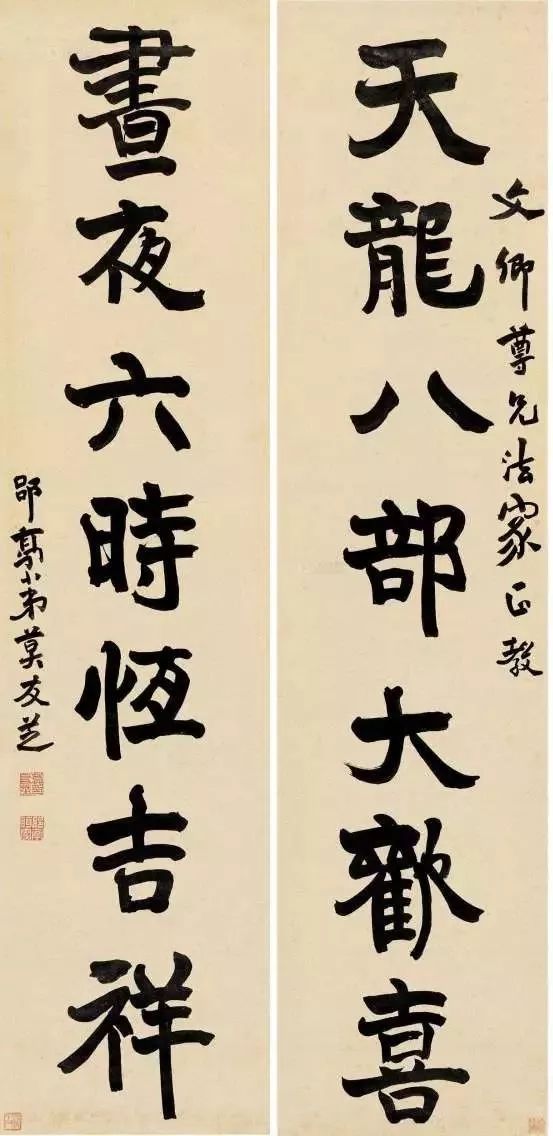 文卿尊兄法家正教
天龍八部大歡喜
晝夜六時恆吉祥
郘亭小弟莫友芝